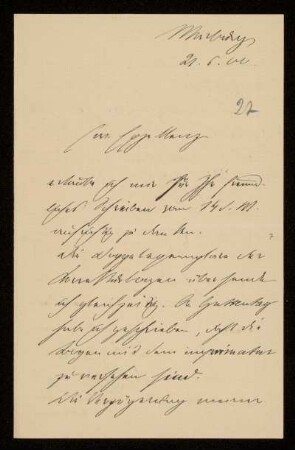 Marburg
21. 6. 00
27
Ew Excellenz
erlaube ich mir für Ihr freund-
liches Schreiben vom 14 d. M.
zu danken.
Die Doppelexemplare der
übersende
ich gleichzeitig. An Guttentag
habe ich geschrieben, daß die
Bogen mit dem imprimatur
zu versehen sind.
Die Verzögerung meiner